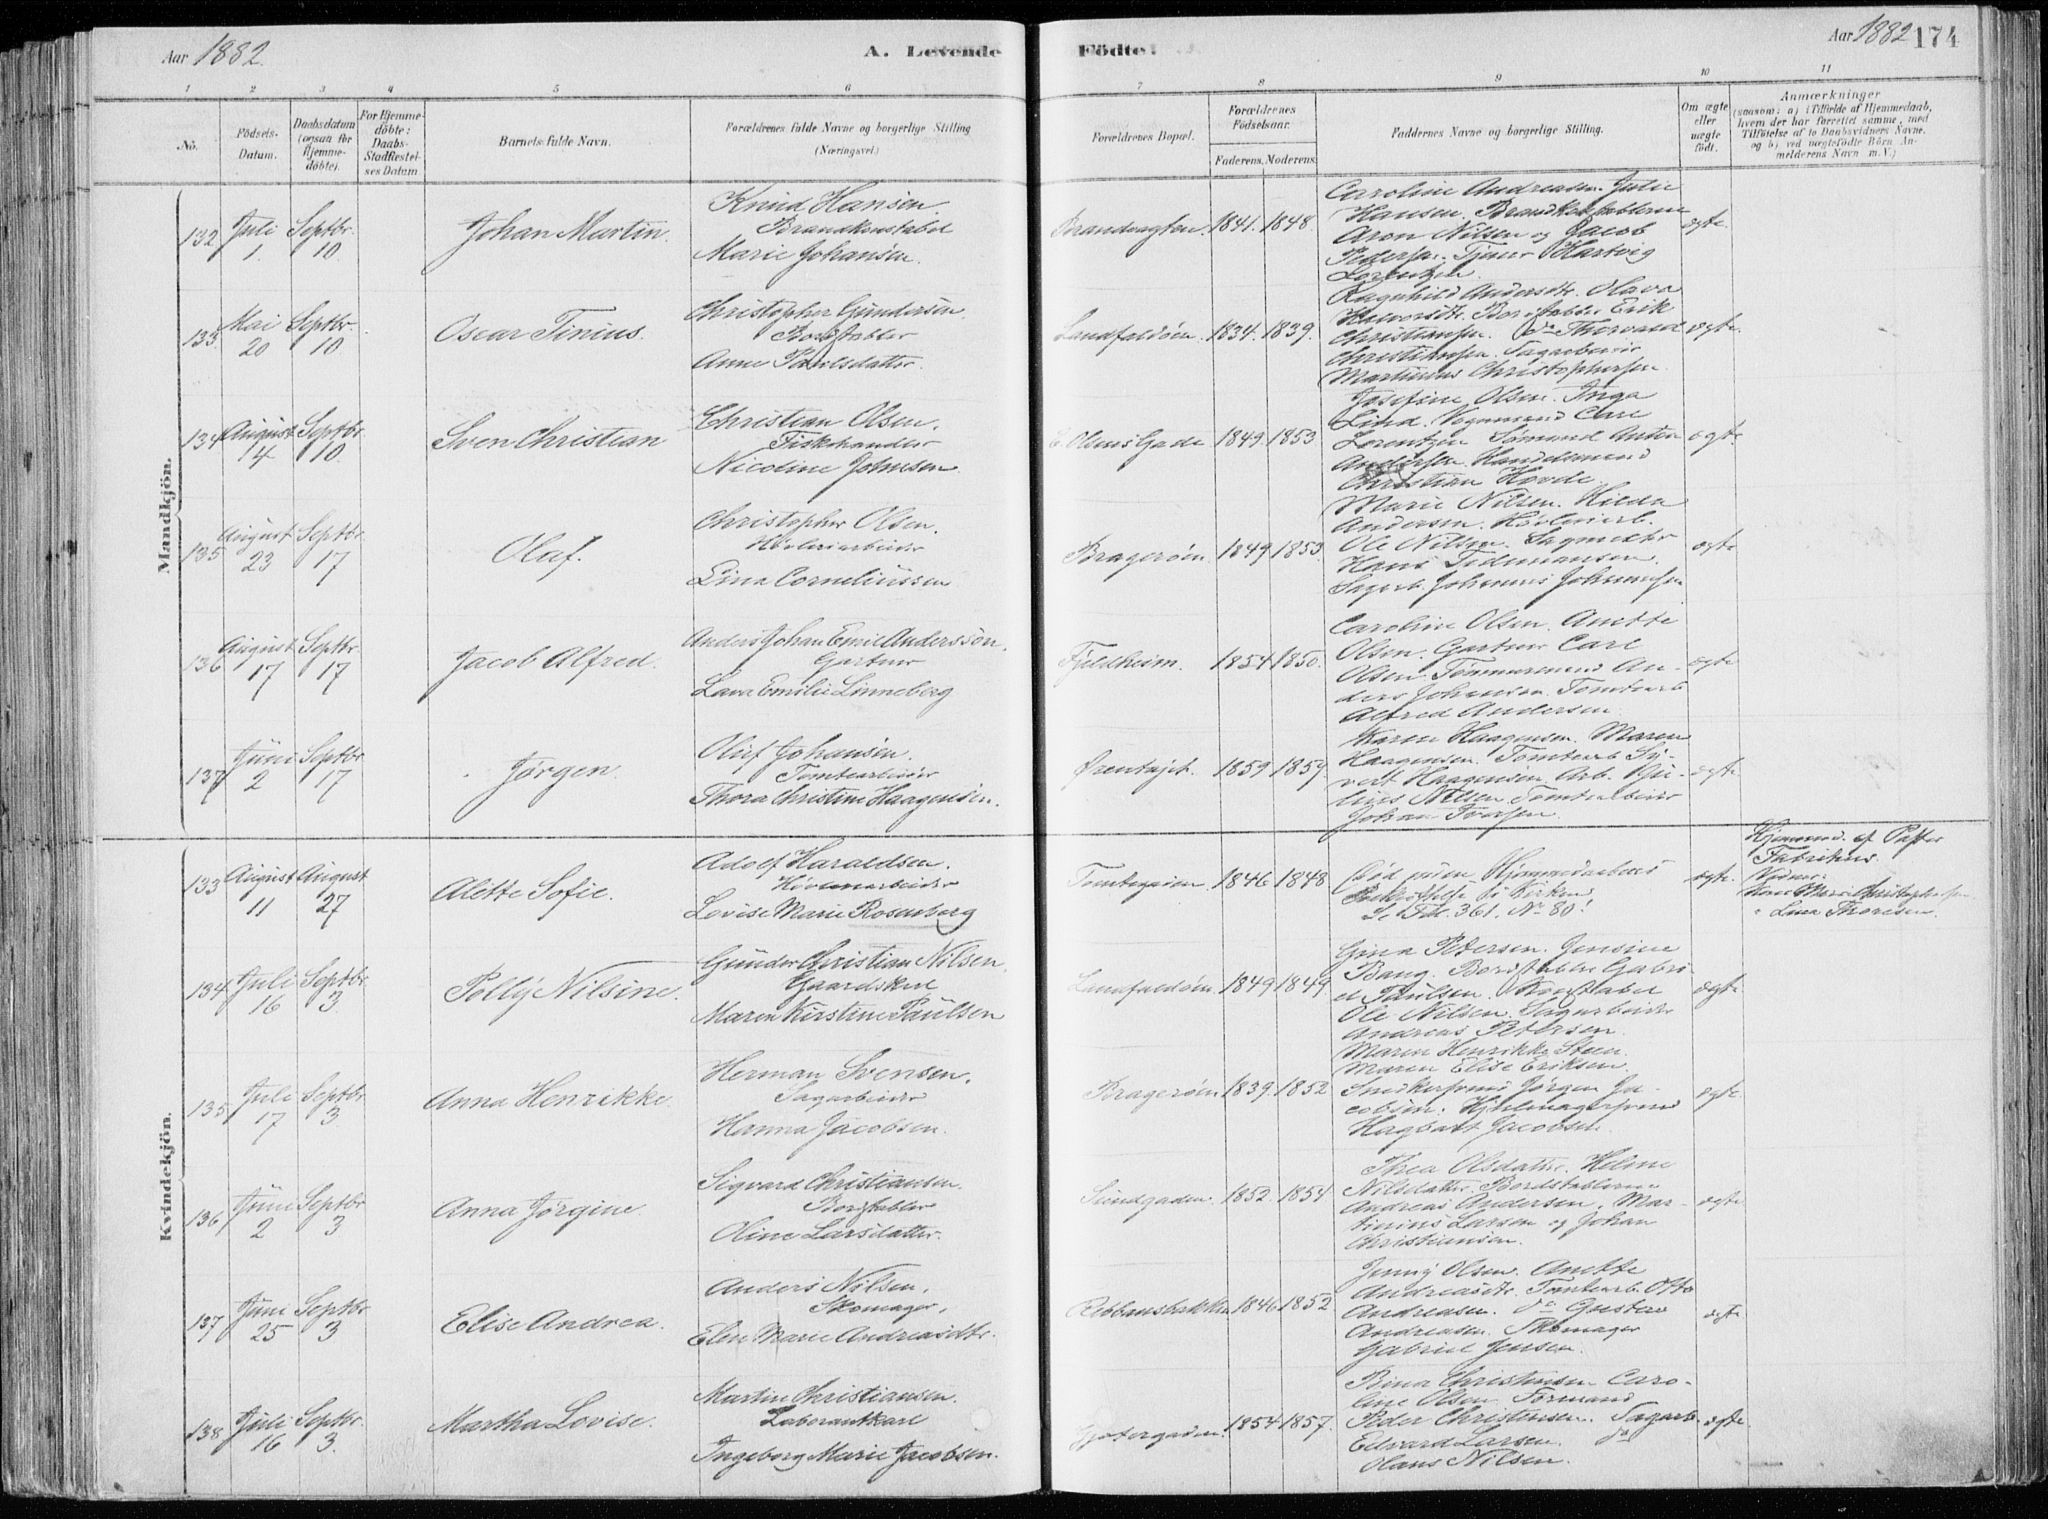 Aar 1882.
A. Levende
Födte.
Aar 1882 174
1 2 3 4 5 6
7 8 9 10 11
No.
Födsels-
Datum.
Daabsdatum
(ogsaa för
Hjemme-
döbte).
For Hjemme-
döbte:
Daabs-
Stadfæstel-
ses Datum
Barnets fulde Navn.
Forældrenes fulde Navne og borgerlige Stilling
(Næringsvei.)
Forældrenes Bopæl.
Forældrenes
Födselsaar.
Faderens. Moderens.
Faddernes Navne og borgerlige Stilling.
Om ægte
eller
uægte
födt.
Anmærkninger
(saasom: a) i Tilfælde af Hjemmedaab,
hvem der har forrettet samme, med
Tilföielse af to Daabsvidners Navne.
og b) ved uægtefödte Börn An-
melderens Navn m. V.)
Mandkjön.
132 Juli 1. Septbr. 10 Johan Martin.
Knud Hansen.
Brandkonstabel
Marie Johansen.
Brandvagten. 1841. 1848.
Caroline Andreasen. Julie
Hansen. Brandkonstablerne
Aron Nilsen og Jacob
Pedersen. Tjener Hartvig
Lorentzen.
ægte.
133 Mai 20 Septbr. 10 Oscar Tinius.
Christopher Gundersen.
Bordstabler
Anne Paulsdatter.
Landfaldøen. 1834. 1839.
Ragnhild Andersdtr. Olava
Halvorsdtr. Bordstabler Erik
Christiansen. Do Thorvald
Christiansen. Sagarbeider
Martinius Christophersen.
ægte.
134 August 14 Septbr. 10 Sven Christian
Christian Olsen.
Fiskehandler
Nicoline Johnsen.
E. Olsens Gade 1849. 1853
Josefine Olsen. Inga
Lind. Vognmand Carl
Lorentzen Sømand Anton
Andersen. Handelsmand
Christian Hovde.
ægte
135 August 23 Septbr. 17 Olaf.
Christopher Olsen.
Høvleriarbeider
Lina Corneliussen
Bragerøen. 1849 1853.
Marie Nilsen. Hilda
Andersen. Høvleriarb.
Ole Nilsen. Sagmester
Hans Tidemansen.
Sagarb. Johannes Johannesen
ægte
136 August 17 Septbr. 17 Jacob Alfred.
Anders Johan Emil Andersson.
Gartner
Lava Emilie Linneberg
Fjeldheim. 1854 1850.
Caroline Olsen. Anette
Olsen. Gartner Carl
Olsen. Tømmermand An-
ders Johansen. Tomtearb
Alfred Andersen.
ægte
137 Juni 2 Septbr. 17 Jørgen.
Oluf Johansen.
Tomtearbeider
Thora Christine Haagensen.
Ørentøjet. 1859 1859.
Karen Haagensen. Maren
Haagensen. Tomtearb. Sy-
vert Haagensen. Arb. Ju-
lius Nilsen. Tomtearbeider
Johan Iversen.
ægte
Kvindekjön.
133 August 11 August 27 Alette Sofie.
Adolf Haraldsen.
Høvleriarbeider
Lovise Marie Rosenberg
Tomtegaden 1846 1848
Død inden Hjemmedaabens
Bekræftelse i Kirken.
S. Fol. 361. No 80!
ægte.
Hjemmed. af Pastor
Fabritius.
Vidner:
Karen Marie Christophersen
" Lina Thoresen.
134 Juli 16 Septbr. 3. Polly Nilsine.
Gunder Christian Nilsen.
Gaardskarl
Maren Kirstine Paulsen
Landfaldøen. 1849 1849.
Gina Pedersen. Jensine
Bang. Bordstabler Gabri-
el Paulsen. Konstabel
Ole Nilsen. Sagarbeider
Andreas Petersen.
ægte.
135 Juli 17 Septbr. 3. Anna Henrikke.
Herman Svensen.
Sagarbeider
Hanna Jacobsen.
Bragerøen 1839. 1852
Maren Henrikke Steen.
Maren Elise Eriksen.
Snedkersvend Jørgen Ja-
cobsen. Hjulmagersvend
Hagbart Jacobsen.
ægte.
136 Juni 2 Septbr. 3 Anna Jørgine.
Sigvard Christiansen.
Bordstabler
Oline Larsdatter.
Sundgaden. 1852. 1854
Thea Olsdatter. Heline
Nilsdatter. Bordstablerne
Andreas Andersen. Mar-
tinius Larsen og Johan
Christiansen.
ægte
137 Juni 25 Septbr. 3 Elise Andrea.
Anders Nilsen.
Skomager,
Elen Marie Andreasdtr.
Rebbansbakken 1846 1852
Jenny Olsen. Anette
Andreasdtr. Tomtearb. Otto
Andreasen. Do Gustav
Andreasen. Skomager
Gabriel Jensen.
ægte
138 Juli 16 Septbr. 3. Martha Lovise.
Martin Christiansen.
Laborantkarl
Ingeborg Marie Jacobsen.
1854 1857.
Bina Christensen Caro-
line Olsen. Formand
Peder Christensen. Sagarb.
Edvard Larsen. Do
Olaus Nilsen.
ægte